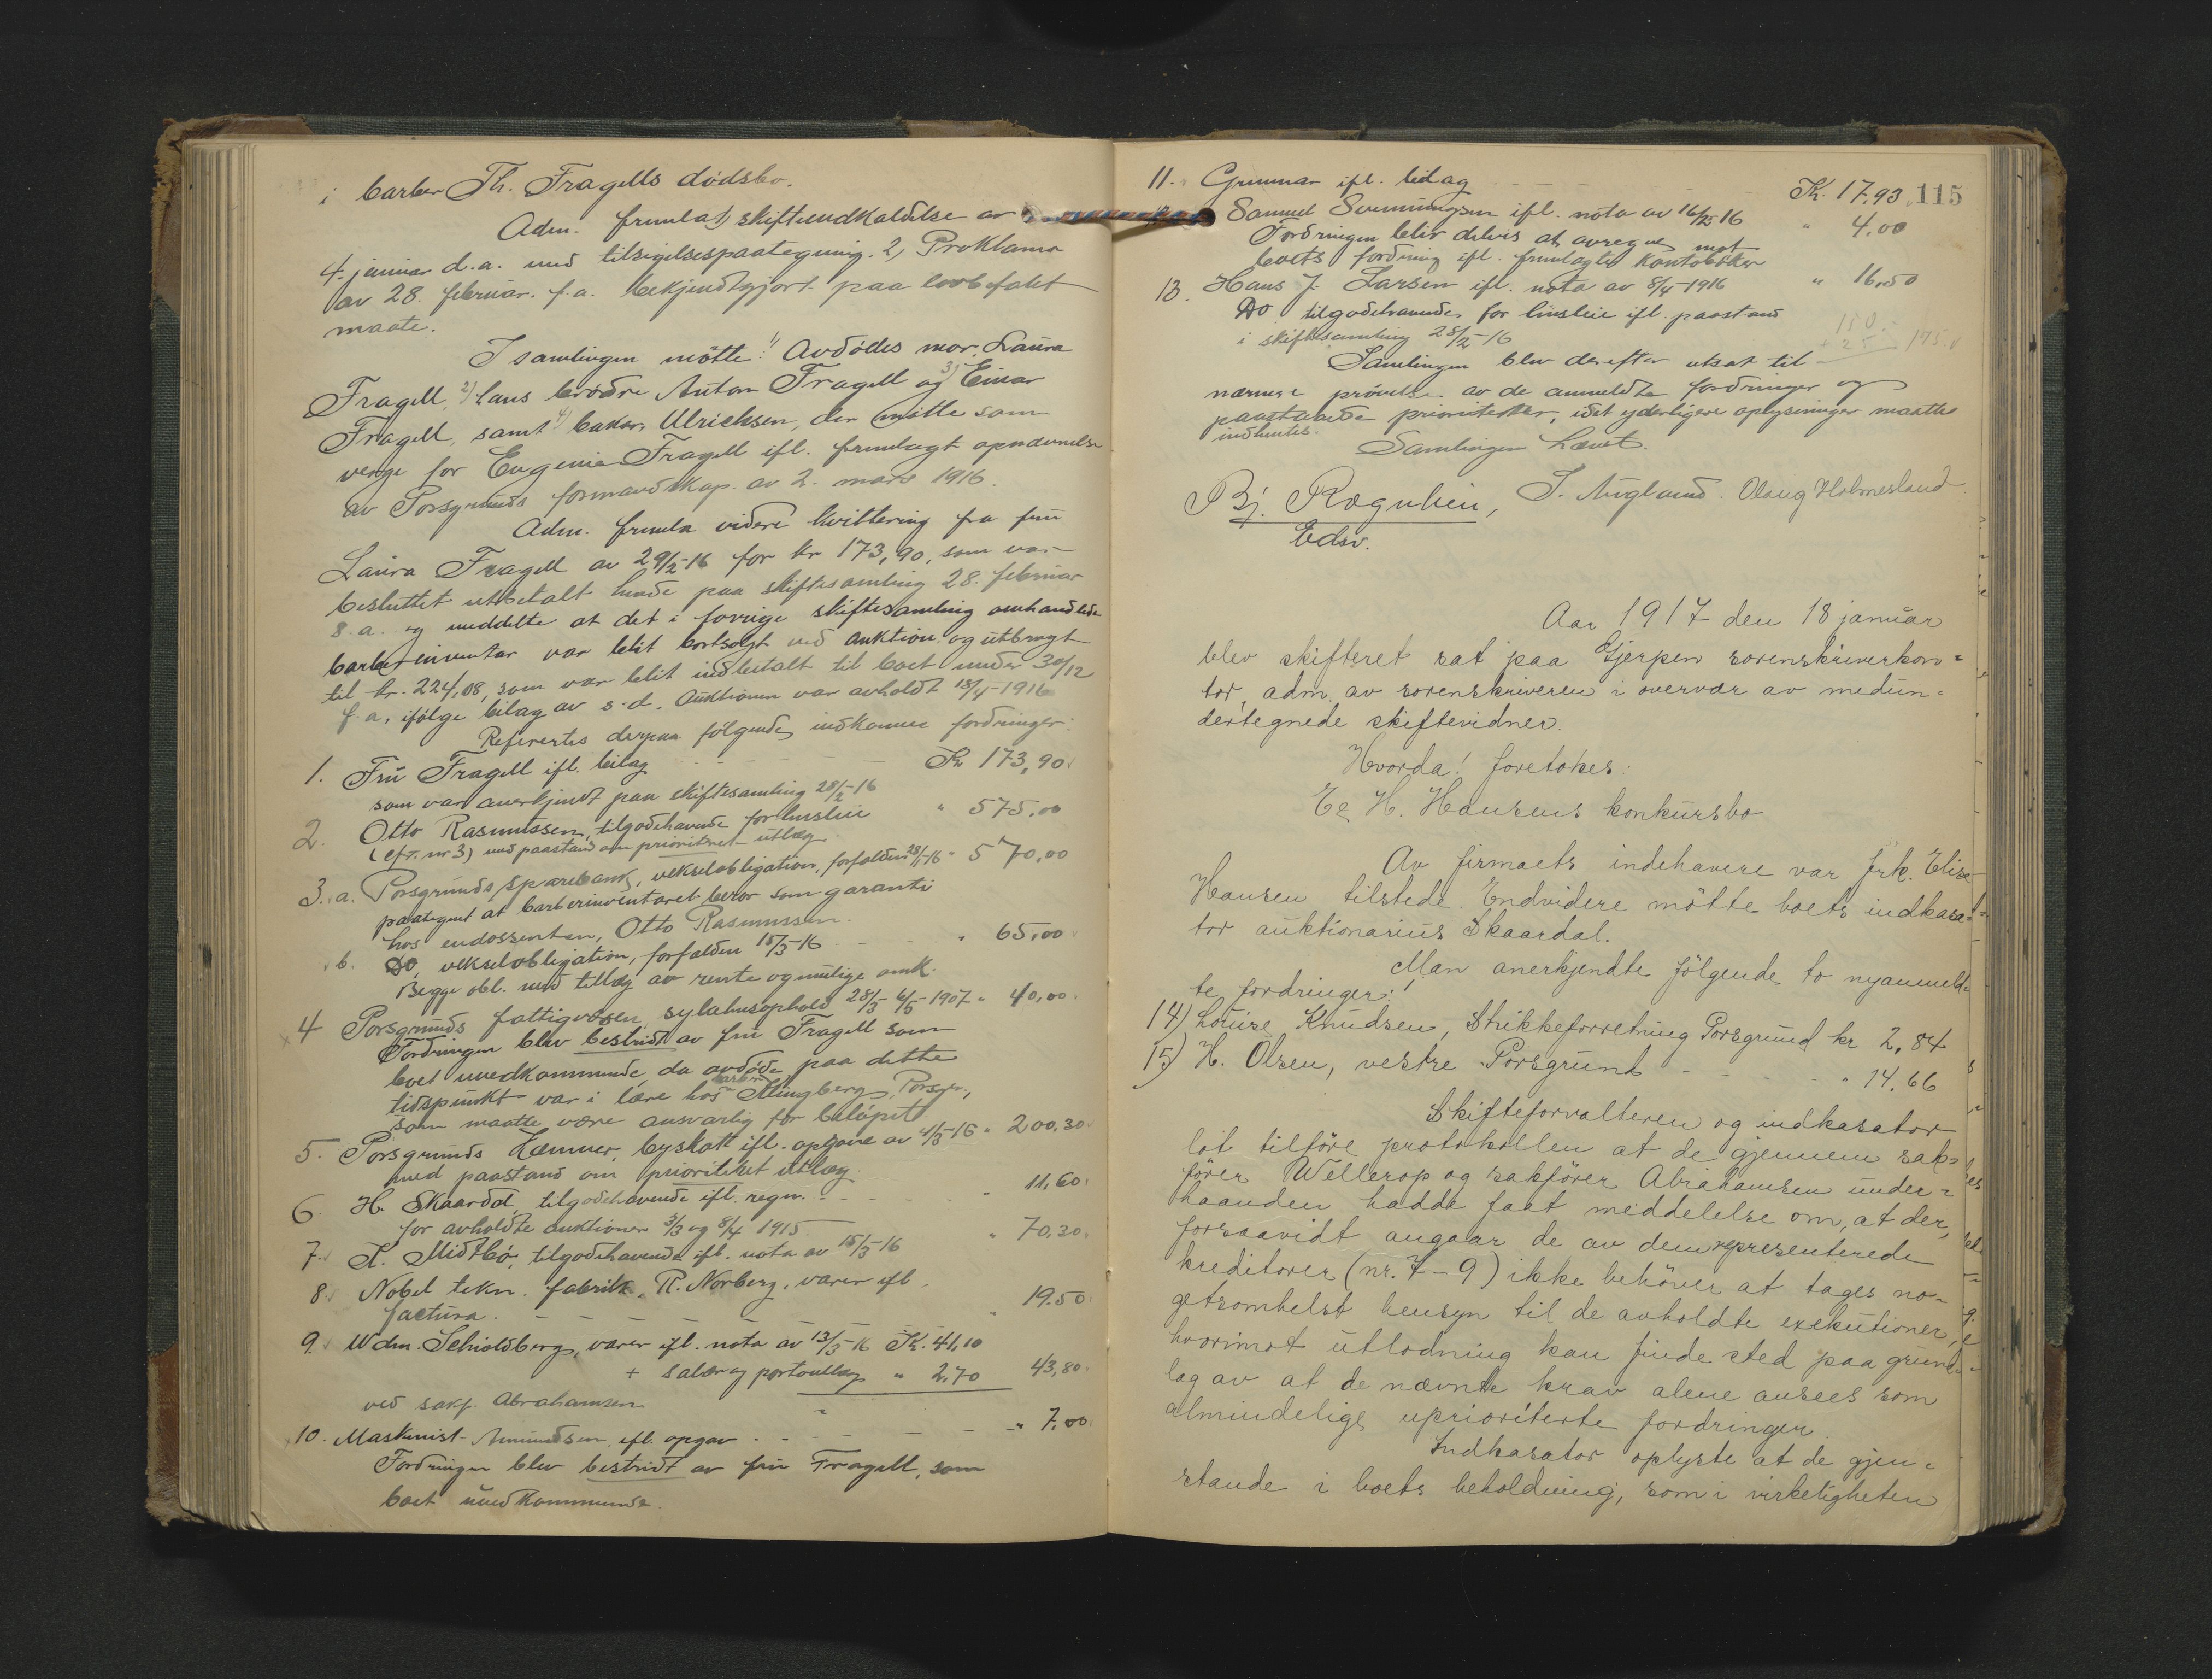 i barber Th. Fragells dödsbo.
Adm. fremla 1) skifteindkaldelse av
4. januar d.a. med tilsigelsespaategning. 2) Proklama
av 28. februar f.a. bekjendtgjort paa lovbefalt
maate.
I samlingen mötte 1) Avdödes mor, Laura
Fragell, 2) hans brödre Anton Fragell og 3) Einar
Fragell, samt 4) baker Ulrichsen, der mötte som
verge for Eugenie Fragell ifl. fremlagt opnævnelse
av Porsgrunds formandskap av 2. mars 1916.
Adm. fremla videre kvittering fra fru
Laura Fragell av 29/2-16 for kr 173,90, som var
besluttet utbetalt hende paa skiftesamling 28. februar
s.a. og meddelte at det i forrige skiftesamling omhandlede
barberinventar var blit bortsolgt ved auktion og utbragt
til kr. 224,08, som var blit indbetalt til boet under 30/12
f.a. ifølge bilag av s.d. Auktionen var avholdt 18/4-1916
Refererertes derpaa fölgende indkomne fordringer:
1. Fru Fragell ifl. bilag - - - Kr 173,90
som var anerkjendt paa skiftesamling 28/2-16
2. Otto Rasmussen, tilgodehavende for husleie " 575,00
(cfr. nr 3) med paastand om prioritert utlæg
3. a. Porsgrunds Sparebank, vekselobligation, forfalden 28/1-16 " 570,00
paategnet at barberinventaret beror som garanti
hos endossenten, Otto Rasmussen.
b. Do, vekselobligation, forfalden 15/3-16 - - " 65,00
Begge obl. med tillæg av rente og mulige omk.
4 Porsgrunds fattigvæsen, sykehusophold 28/3-6/5-1907 " 40,00
Fordringen blev bestridt av fru Fragell som
boet uvedkommende, da avdöde paa dette
tidspunkt var i lære hos barber Klingberg, Porsgr.,
som maatte være ansvarlig for belöpet
5. Porsgrunds Kæmner, byskatt ifl. opgave av 4/3-16 " 200.30
med paastand om prioritert utlæg
6. H. Skaardal, tilgodehavende ifl. regn. - - - " 11,60
for avholdte auktioner 3/3 og 8/4 1915
7. K. Midtbö, tilgodehavende ifl. nota av 15/3-16 " 70,30
8. Nobel tekn. fabrik, R. Norberg, varer ifl.
factura. - - - - " 19.50
9. Wdm. Schioldborg, varer ifl. nota av 13/3-16 Kr. 41,10
+ salær og portoutlæg " 2,70 43,80
ved sakf. Abrahamsen
10. Maskinist Amundsen ifl. opgav - - - " 7,00
Fordringen blev bestridt av fru Fragell, som
boet uvedkommende.
115
11. Gunnar ifl. bilag - - - Kr. 17,93
Samuel Svenningsen ifl. nota av 16/2-16 " 4,00
Fordringen blir delvis at avregne mot
boets fordring ifl. fremlagte kontoböker
13. Hans J. Larsen ifl. nota av 8/4-1916 " 16,50
Do tilgodehavende for husleie ifl. paastand
i skiftesamling 28/2-16
150.-
+ 25 - 175.
Samlingen blev derefter utsat til
nærmere prövelse av de anmeldte fordringer og
paastaaede prioriteter, idet yderligere oplysninger maatte
indhentes.
Samlingen hævet.
Bj. Rogulien, T. Augland. Olaug Holmesland
Edsv.
Aar 1917 den 18 januar
blev skifteret sat paa Gjerpen sorenskriverkon=
tor, adm. av sorenskriveren i overvær av medun=
dertegnede skiftevidner.
Hvorda! foretokes:
E & H. Hansens konkursbo
Av firmaets indehavere var frk. Elise
Hansen tilstede. Endvidere mötte boets indkasa=
tor auktionarius Skaardal.
Man anerkjendte fölgende to nyanmeld=
te fordringer:
14) Louise Knudsen, Strikkeforretning Porsgrund kr 2,84
15) H. Olsen, vestre Porsgrund - - - " 14.66
Skifteforvalteren og indkasator
lot tilföre protokollen at de gjennem sak=
förer Wellerop og sakförer Abrahamsen under=
haanden hadde faat meddelelse om, at der,
forsaavidt angaar de av dem representerede
kreditorer (nr. 7-9) ikke behöver at tages no=
getsomhelst hensyn til de avholdte exekutioner,
hvorimot utlodning kan finde sted paa grund=
lag av at de nævnte krav alene ansees som
almindelige uprioriterte fordringer.
Indkasator oplyste at de gjen=
stande i boets beholdning, som i virkeligheten